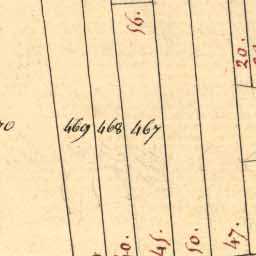 56.
20.
469 468 467
45.
50.
47.